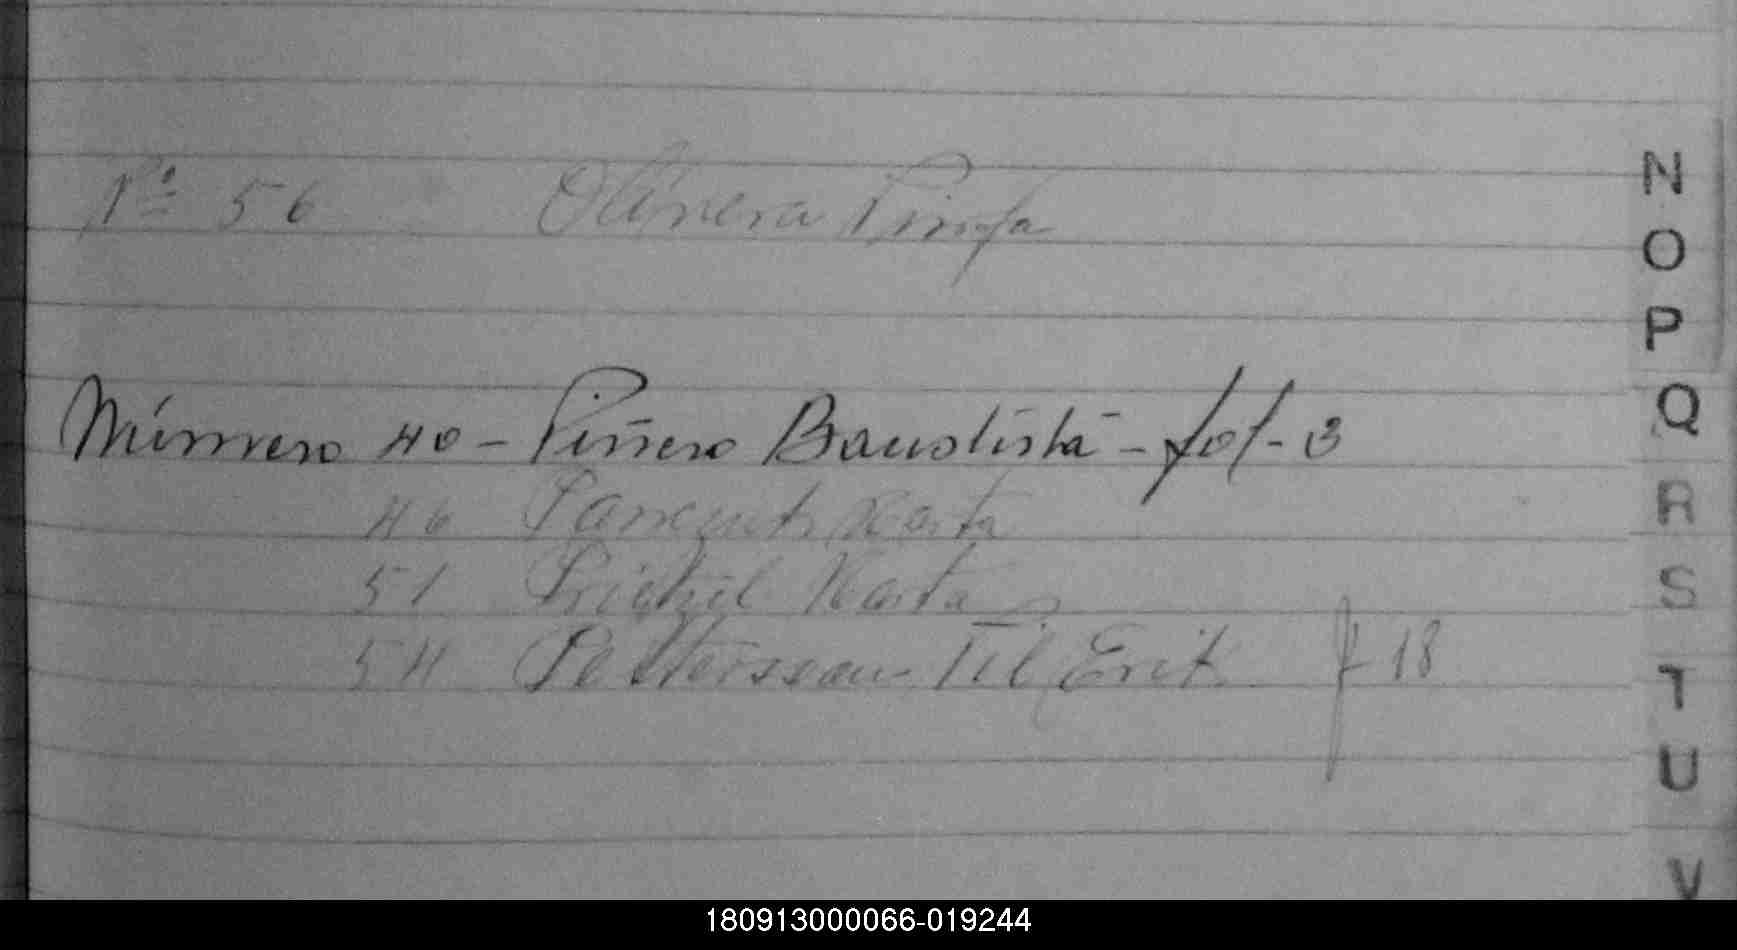 Nº 56 Olivera
Número 40 - Piñero Bautista - fol - 3
46 Marta
51 Marta
54 Petterssean Til Erik f 18
N
O
P
Q
R
S
T
U
V
180913000066-019244